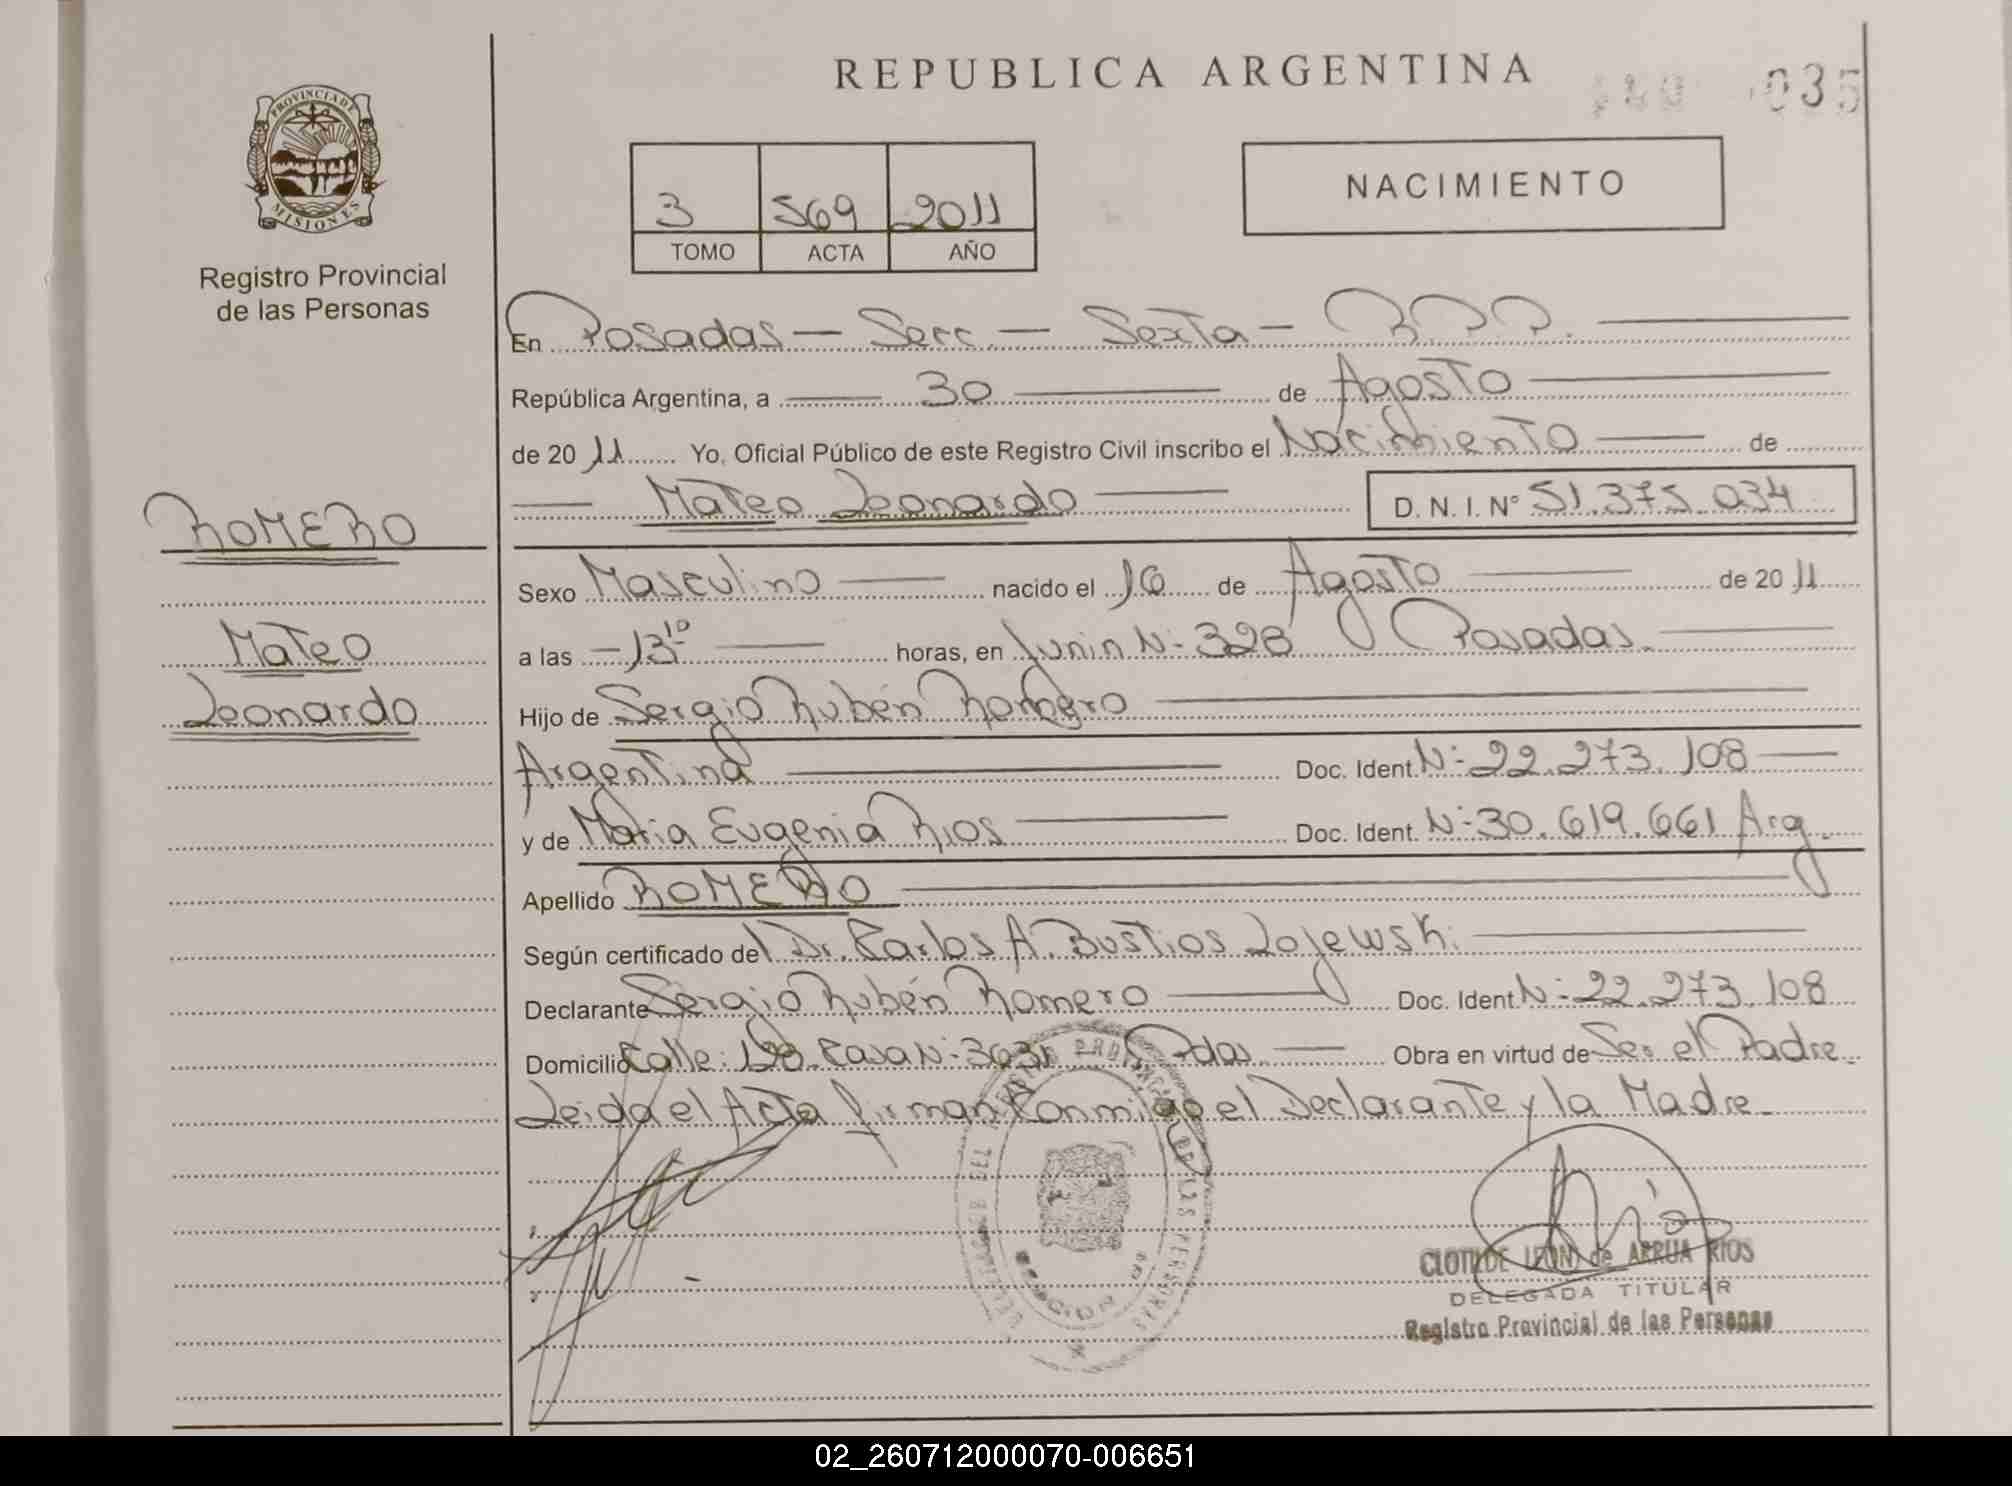 REPUBLICA ARGENTINA
035
PROVINCIA DE
MISIONES
Registro Provincial
de las Personas
3 569 2011
TOMO ACTA AÑO
NACIMIENTO
En Posadas — Secc. — Sexta — R.P.P.
República Argentina, a 30 de Agosto
de 2011 Yo, Oficial Público de este Registro Civil inscribo el Nacimiento de
Mateo Leonardo D. N. I. N° 51.375.034
ROMERO
Mateo
Leonardo
Sexo Masculino nacido el 16 de Agosto de 2011
a las 13 10 horas, en Junin N: 328 Posadas.
Hijo de Sergio Rubén Romero
Argentina Doc. Ident N: 22.273.108
y de Maria Eugenia Rios Doc. Ident. N: 30.619.661 Arg.
Apellido ROMERO
Según certificado del Dr. Carlos A. Bustios Lojewski.
Declarante Sergio Rubén Romero Doc. Ident N: 22.273.108
Domicilio Calle: 128. Casa N: 3031 Pdas. Obra en virtud de Ser el Padre.
Leida el Acta firman Conmigo el Declarante y la Madre.
CLOTILDE LEONI de ARRUA RIOS
DELEGADA TITULAR
Registro Provincial de las Personas
02_260712000070-006651